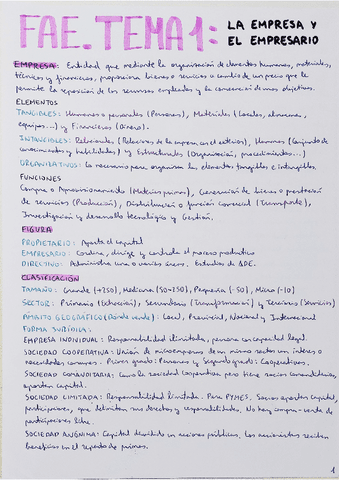 FAE. TEMA 1: LA EMPRESA Y
EL EMPRESARIO
EMPRESA: Entidad que mediante la organización de elementos humanos, materiales,
técnicos y financieros, proporciona bienes o servicios a cambio de un precio que le
permite la reposición de los recursos empleados y la consecución de unos objetivos.
ELEMENTOS
TANGIBLES: Humanos o personales (Personas), Materiales (Locales, almacenes,
equipos...) y Financieros (Dinero).
INTANGIBLES: Relacionales (Relaciones de la empresa con el exterior), Humanos (Conjunto de
conocimientos y habilidades) y Estructurales (Organización, procedimientos...)
ORGANIZATIVOS: Lo necesario para organizar los elementos tangibles e intangibles.
FUNCIONES
Compra o Aprovisionamiento (Materias primas), Generación de bienes o prestación
de servicios (Producción), Distribución o función comercial (Transporte),
Investigación y desarrollo tecnológico y Gestión.
FIGURA
PROPIETARIO: Aporta el capital
EMPRESARIO: Coordina, dirige y controla el proceso productivo
DIRECTIVO: Administra una o varias áreas. Estudios de ADE.
CLASIFICACIÓN
TAMAÑO: Grande (+250), Mediana (50-250), Pequeña (-50), Micro (-10)
SECTOR: Primario (Extracción), Secundario (Transformación) y Terciario (Servicios)
ÁMBITO GEOGRÁFICO (Dónde vende): Local, Provincial, Nacional y Internacional
FORMA JURÍDICA:
EMPRESA INDIVIDUAL: Responsabilidad ilimitada, persona con capacidad legal.
SOCIEDAD COOPERATIVA: Unión de microempresas de un mismo sector con interés o
necesidades comunes. Primer grado: Personas y Segundo grado: Cooperativas.
SOCIEDAD COMANDITARIA: Como la sociedad cooperativa pero tiene socios comanditarios,
aportan capital.
SOCIEDAD LIMITADA: Responsabilidad limitada. Para PYMES. Socios aportan capital,
participaciones, que delimitan sus derechos y responsabilidades. No hay compra-venta de
participaciones libre.
SOCIEDAD ANÓNIMA: Capital dividido en acciones públicas. Los accionistas reciben
beneficios en el reparto de primas.
1